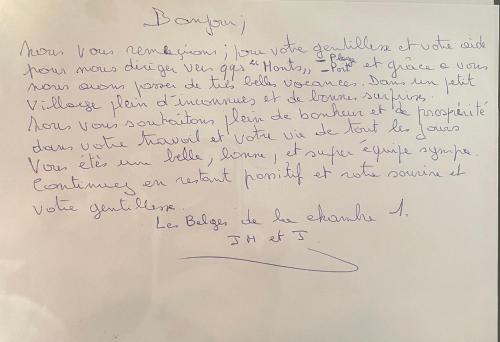 Bonjour;
nous vous remerçions; pour votre gentillesse et votre aide
pour nous diriger vers qqs "Monts,, - Plage - Port et grâce a vous
nous avons passer de très belles vacances. Dans un petit
village plein d'inconnues et de bonnes surprise.
Nous vous souhaitons plein de bonheur et de prospérité
dans votre travail et votre vie de tout les jours
Vous étés une belle, bonne, et super équipe sympa.
Continuez en restant possitif et votre sourire et
votre gentillesse.
Les Belges de la chambre 1.
J H et J